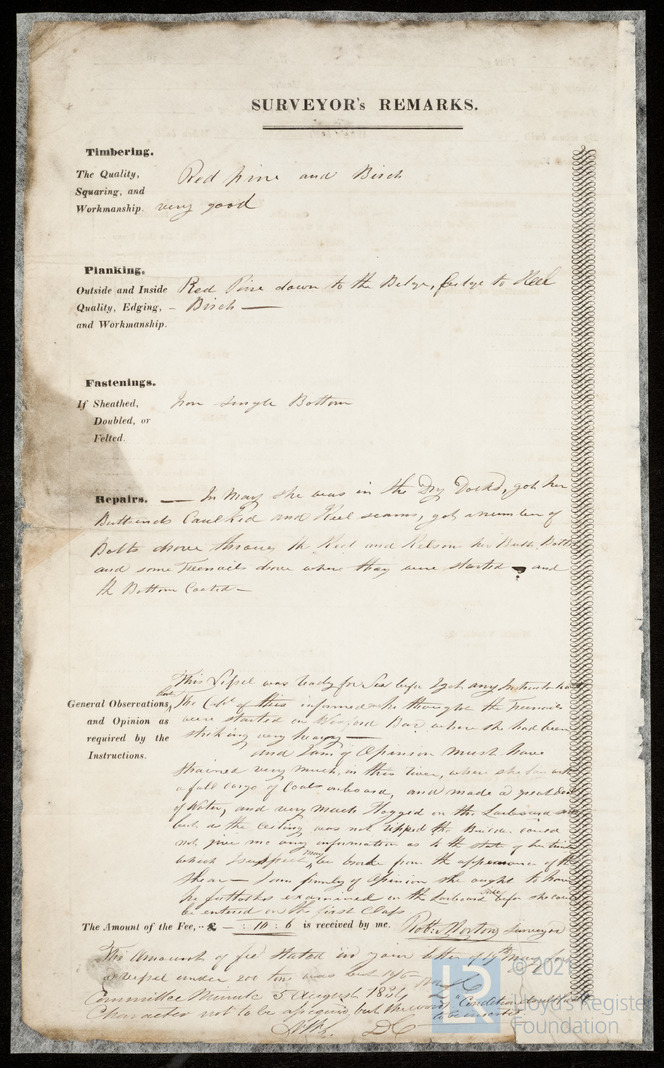 SURVEYOR's REMARKS.
Timbering.
The Quality,
Squaring, and
Workmanship.
Red pine and Birch
very good
Planking.
Outside and Inside
Quality, Edging,
and Workmanship.
Red Pine down to the Bilge, bilge to Keel
- Birch —
Fastenings.
If Sheathed,
Doubled, or
Felted.
Iron single Bottom
Repairs. — In May she was in the Dry Docks, got her
Butt ends Caulked and Keel seams, got a number of
Bolts drove through the Keel and Kelson her Butt Bolts
and some Treenails drove when they were started and
the Bottom Coated —
General Observations,
and Opinion as
required by the
Instructions.
This Vessel was ready for Sea before I got any Instructions
The Capt of this informed me he thought the Treenails
were started on Bar where she had been
striking very heavy —
and I am of Opinion must have
strained very much, in this river, when she
a full cargo of Coals onboard, and made a great deal
of Water, and very much Hogged on the Larboard side
but as the Ceiling was not ripped the Builder could
not give me any information as to the state of her timbers
which I suspect may be broke from the appearance of the
Shear — I am firmly of Opinion she ought to have
be further examined on the Larboard side before she could
be entered in the first Class
The Amount of the Fee, £ — : 10 : 6 is received by me. Robt Norton Surveyor
The Amount of fee stated in your letter 17th May for
a vessel under 200 tons was but 10/6
Committee Minute 5 August 1834
Character not to be assigned but the words "Condition
to be inserted
© 2021
Lloyd's Register
Foundation